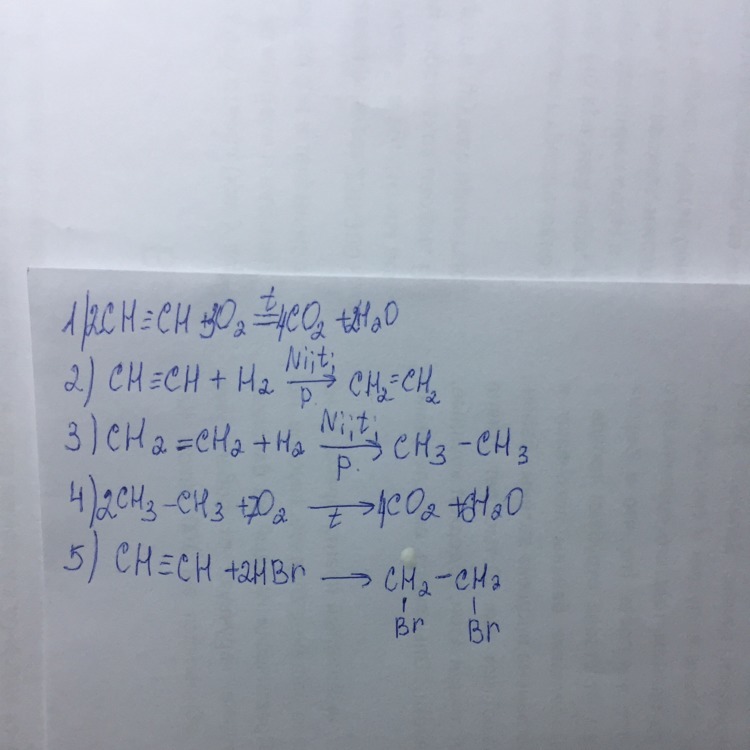 1) 2CH≡CH + 5O₂ =ᵗ 4CO₂ + 2H₂O
2) CH≡CH + H₂ Ni,t, p. → CH₂=CH₂
3) CH₂=CH₂ + H₂ Ni,t, p. → CH₃-CH₃
4) 2CH₃-CH₃ + 7O₂ →t 4CO₂ + 6H₂O
5) CH≡CH + 2HBr → CH₂-CH₂
Br Br